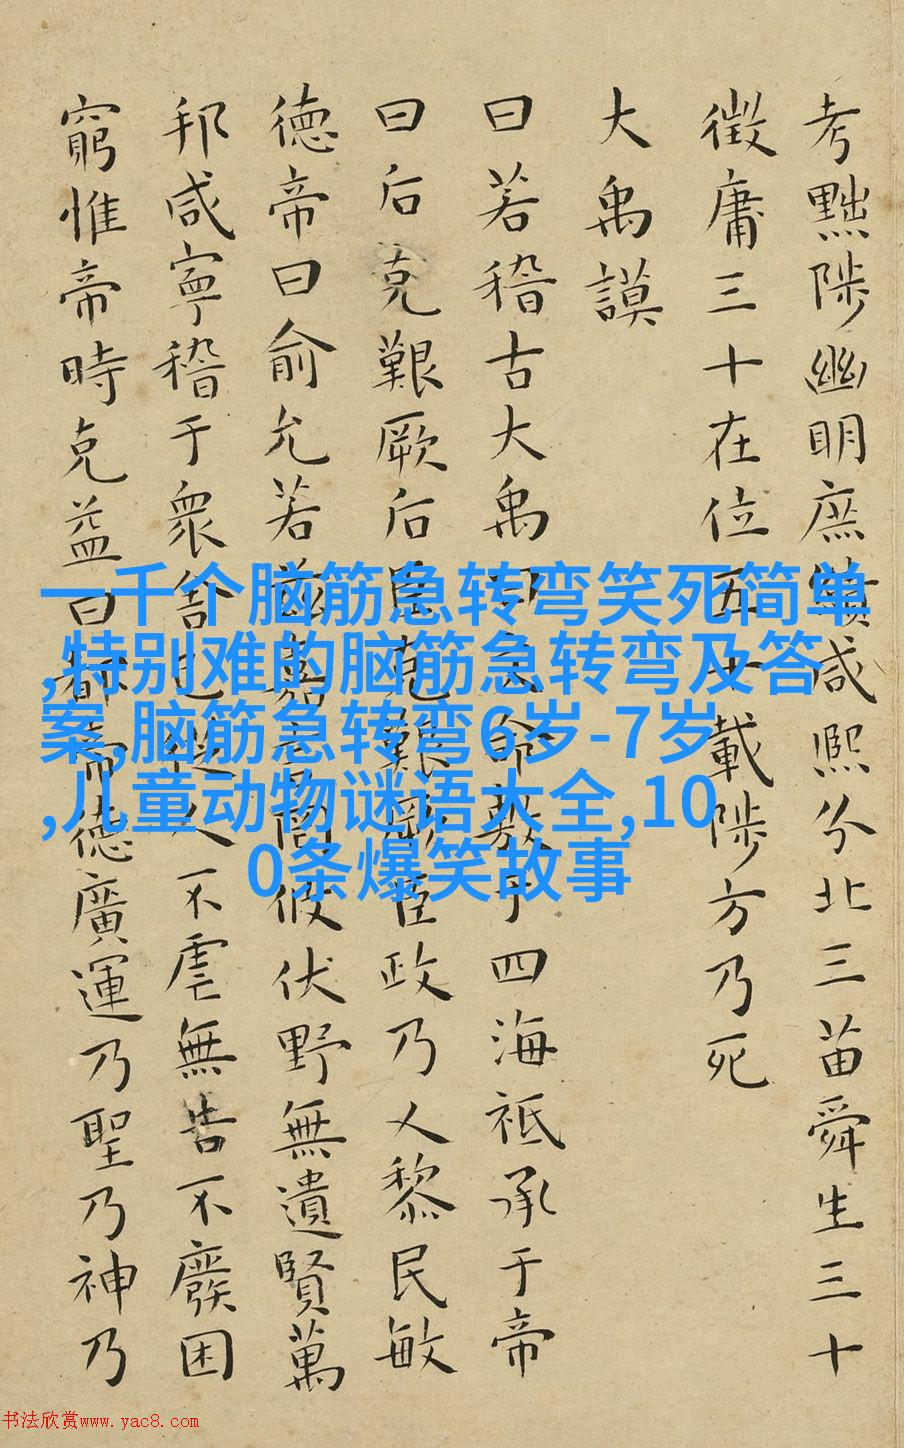 考黜陟幽明庶績咸熙分北三苗舜生三十
徵庸三十在位五十載陟方乃死
大禹謨
曰若稽古大禹曰文命敷于四海祗承于帝
曰后克艱厥后臣克艱厥臣政乃乂黎民敏
德帝曰俞允若茲嘉言罔攸伏野無遺賢萬
邦咸寧稽于衆舍己從人不虐無告不廢困
窮惟帝時克益曰都帝德廣運乃聖乃神乃
一千个脑筋急转弯笑死简单
,特别难的脑筋急转弯及答
案,脑筋急转弯6岁-7岁
,儿童动物谜语大全,10
0条爆笑故事
书法欣赏www.yac8.com